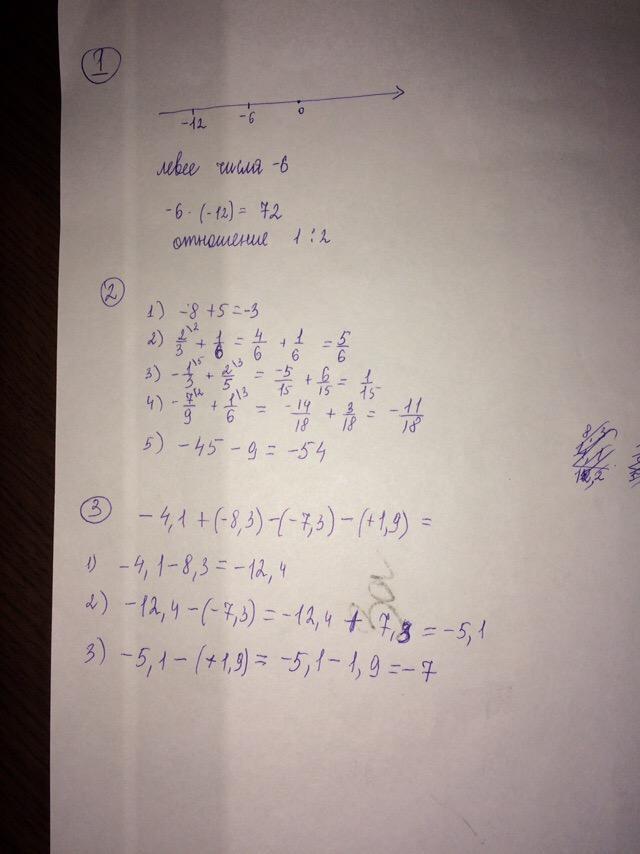 1
-12 -6 0
левее числа -6
-6 · (-12) = 72
отношение 1 : 2
2
1) -8 + 5 = -3
2) 2/3 \2 + 1/6 = 4/6 + 1/6 = 5/6
3) -1/3 \5 + 2/5 \3 = -5/15 + 6/15 = 1/15
4) -7/9 \2 + 1/6 \3 = -14/18 + 3/18 = -11/18
5) -45 - 9 = -54
3
-4,1 + (-8,3) - (-7,3) - (+1,9) =
1) -4,1 - 8,3 = -12,4
2) -12,4 - (-7,3) = -12,4 + 7,3 = -5,1
3) -5,1 - (+1,9) = -5,1 - 1,9 = -7